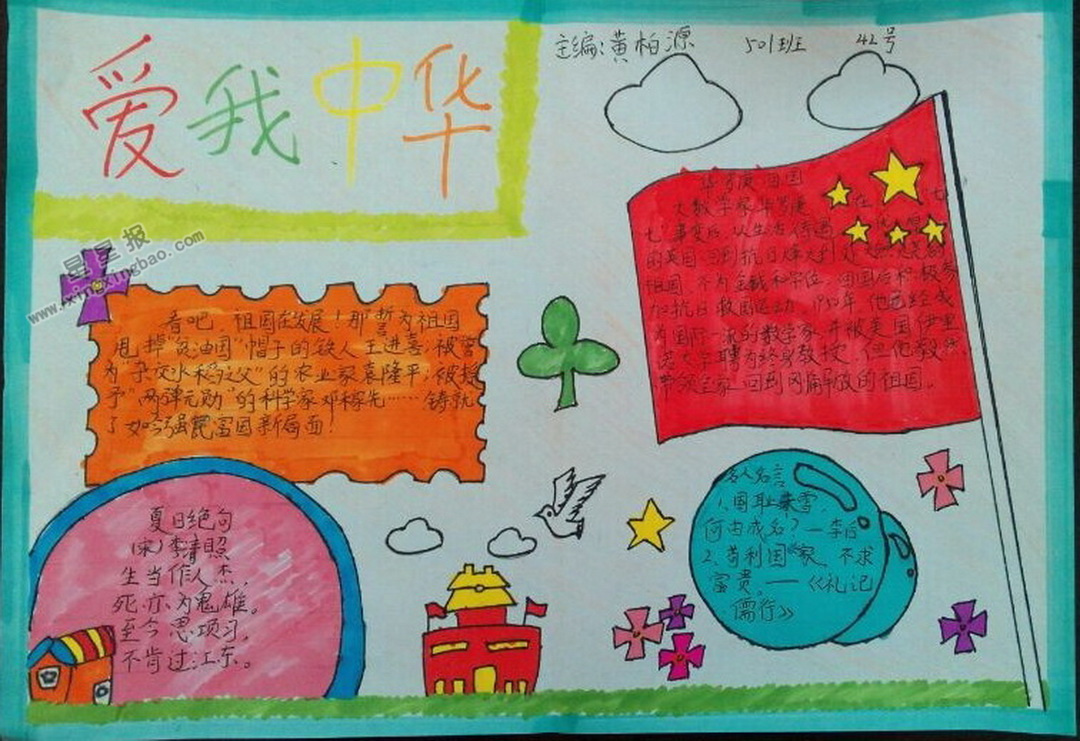 爱我中华
主编:黄柏源 501班 42号
星星报
www.xingxingbao.com
华罗庚回国
大数学家华罗庚在"七
七"事变后,以生活
的英国回到抗日烽火到处燃烧的
祖国,不为金钱和学位,回国后积极参
加抗日救国运动,1950年,他已经成
为国际一流的数学家,并被美国伊里
诺大学聘为终身教授,但他毅然
带领全家回到刚解放的祖国。
看吧,祖国在发展!那誓为祖国
甩掉"贫油国"帽子的铁人王进喜;被誉
为"杂交水稻之父"的农业家袁隆平;被授
予"两弹元勋"的科学家邓稼先……铸就
了
强民富国新局面!
夏日绝句
(宋)李清照
生当作人杰,
死亦为鬼雄。
至今思项习,
不肯过江东。
名人名言
1、国耻未雪,
何由成名?—李白
2、苟利国家,不求
富贵。——《礼记
儒行》